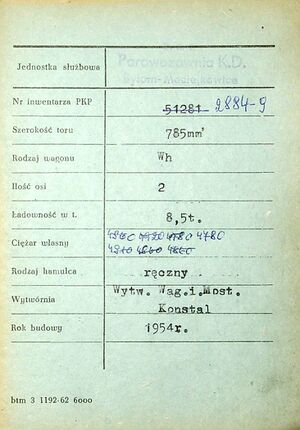 Jednostka służbowa Parowozownia K.D.
Bytom-Maciejkowice
Nr inwentarza PKP 51281 2884-9
Szerokość toru 785mm
Rodzaj wagonu Wh
Ilość osi 2
Ładowność w t. 8,5t.
Ciężar własny 4780
Rodzaj hamulca ręczny
Wytwórnia Wytw. Wag.i.Most.
Konstal
Rok budowy 1954r.
btm 3 1192-62 6000